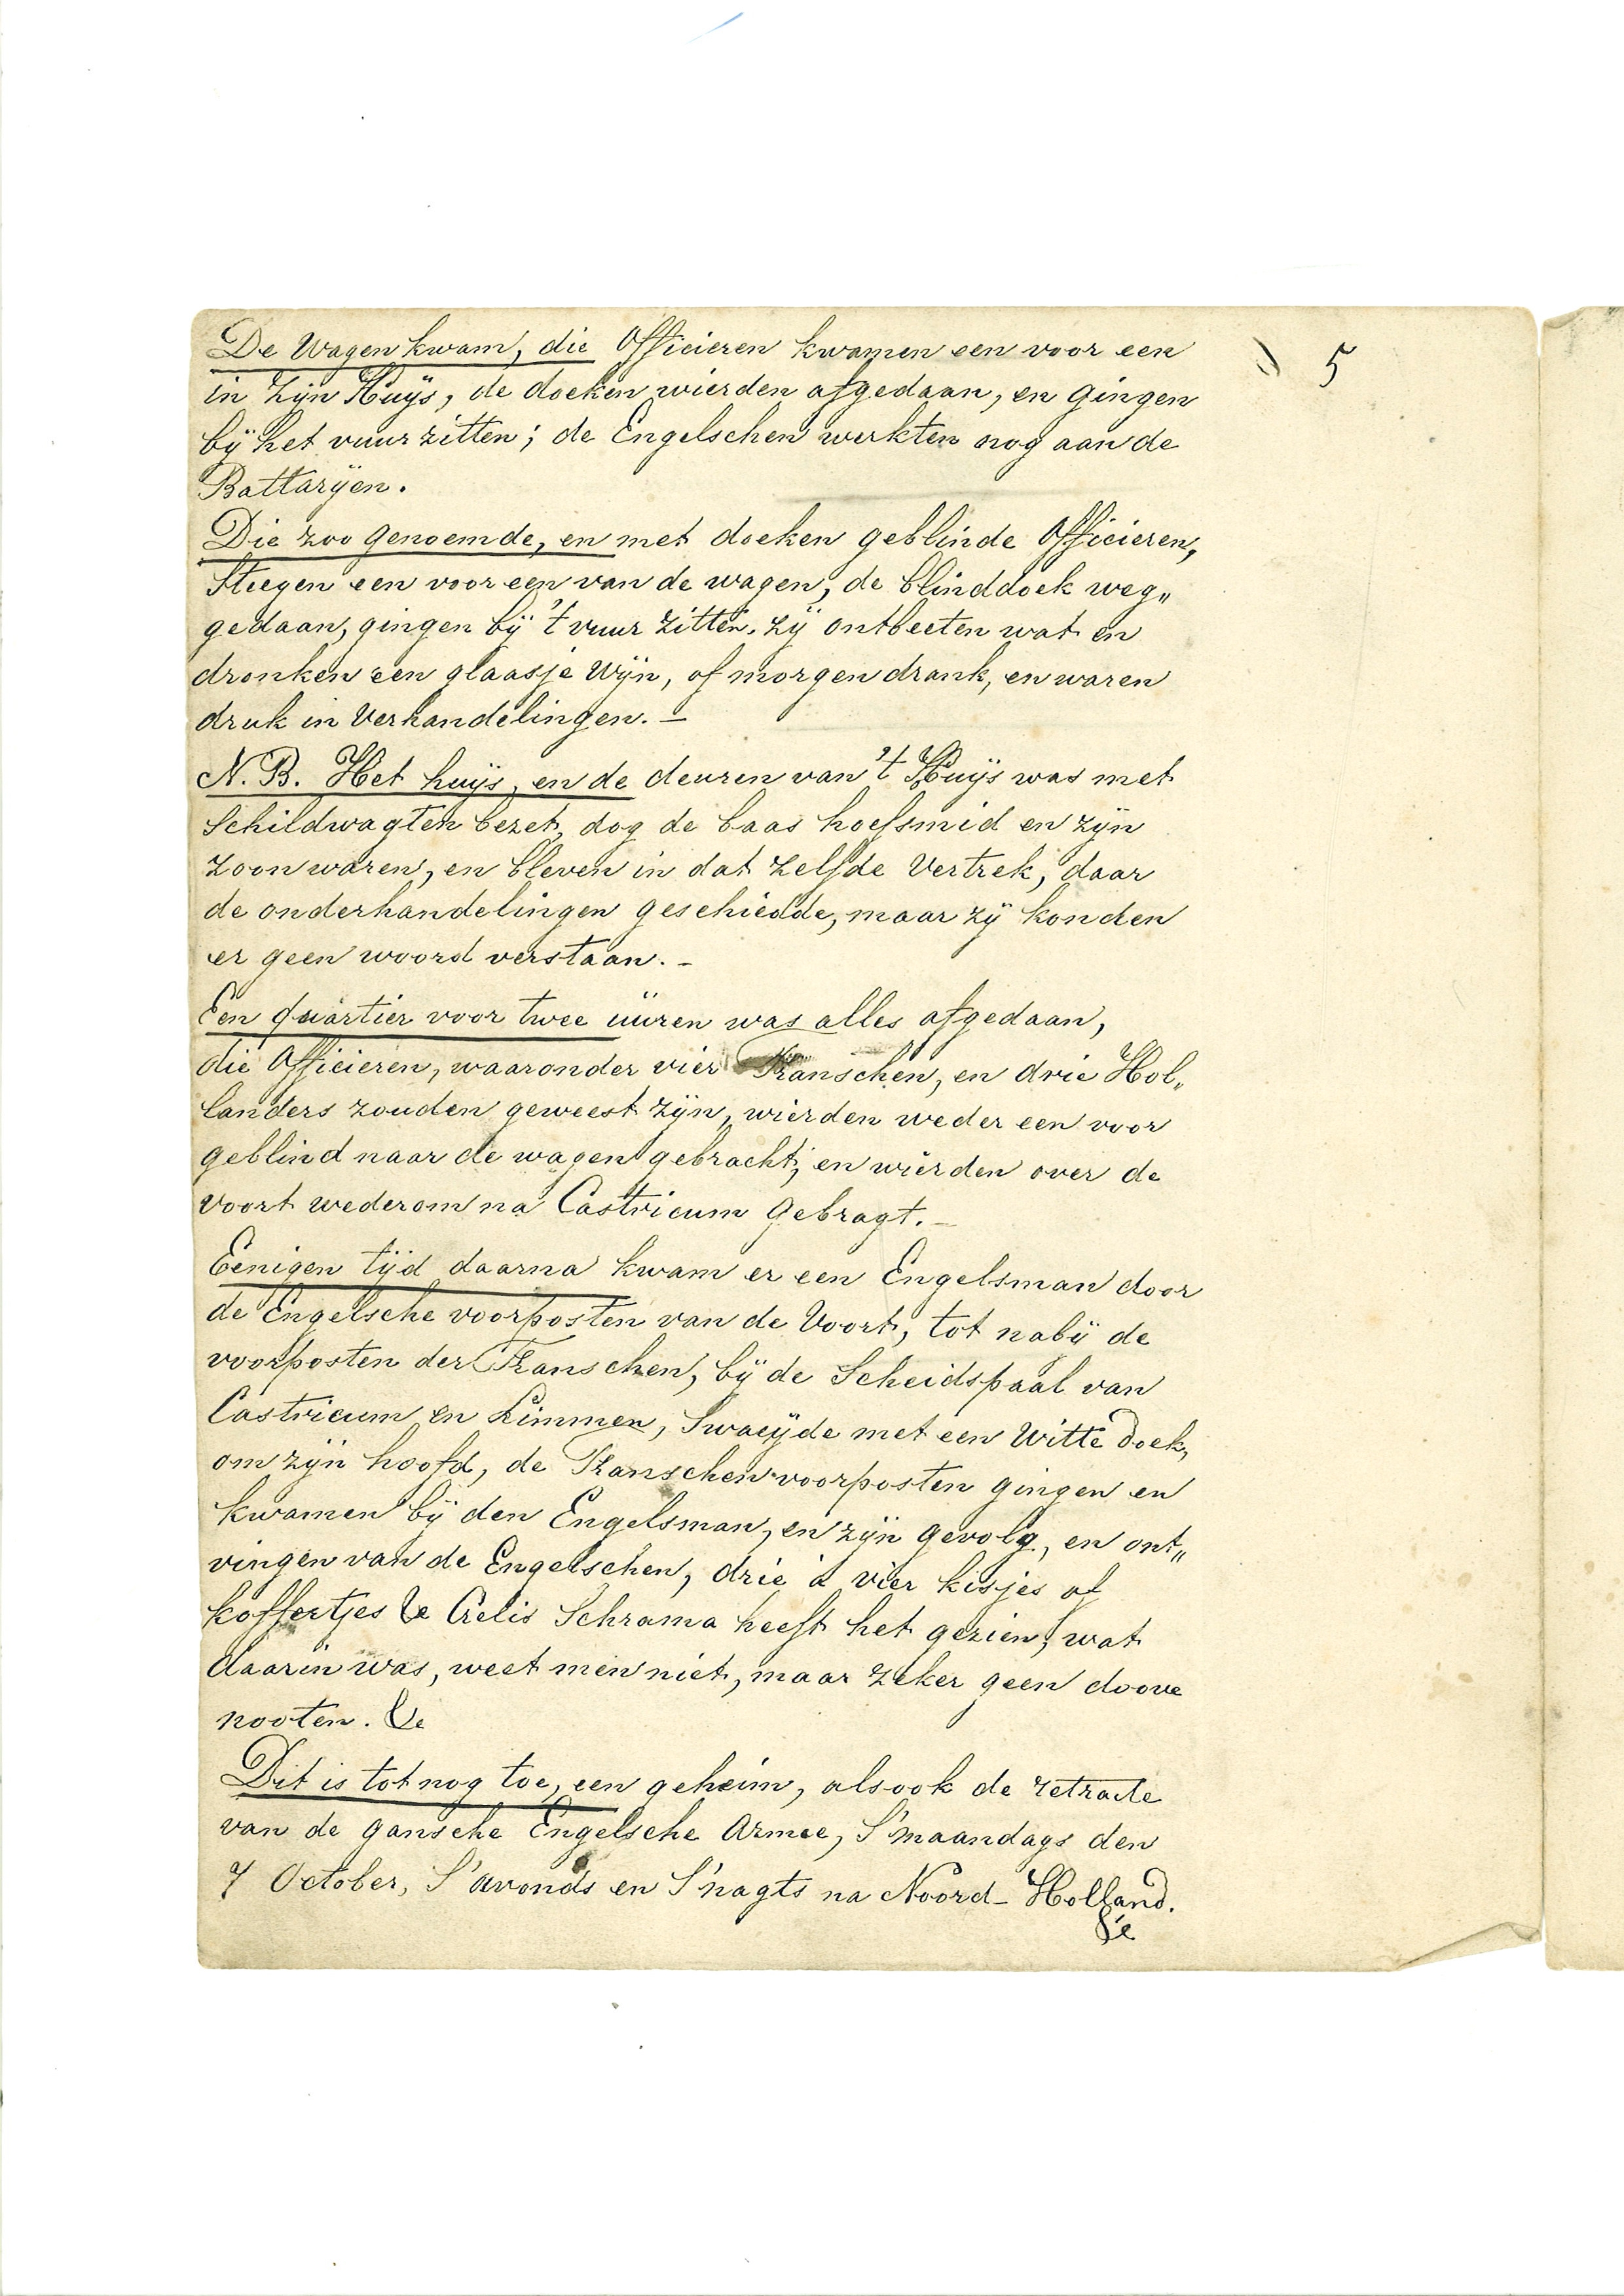 De Wagen kwam, die Officieren kwamen een voor een
5
in zÿn Huÿs, de doeken wierden afgedaan, en gingen
bÿ het vuur zitten; de Engelschen werkten nog aan de
Battarÿen.
Die zoo genoemde, en met doeken geblinde Officieren,
Steegen een voor een van de wagen, de blinddoek weg„
gedaan, gingen bÿ 't vuur zitten. zÿ ontbeeten wat en
dronken een glaasje Wÿn, of morgendrank, en waren
druk in Verhandelingen. –
N. B. Het huÿs, en de deuren van 't Huÿs was met
Schildwagten bezet, dog de baas hoefsmid en zÿn
zoon waren, en bleven in dat zelfde Vertrek, daar
de onderhandelingen geschiedde, maar zÿ konden
er geen woord verstaan. –
Een quartier voor twee üüren was alles afgedaan,
die Officieren, waaronder vier Franschen, en drie Hol„
landers zouden geweest zÿn, wierden weder een voor
geblind naar de wagen gebracht, en wierden over de
Voort wederom na Castricum gebragt. –
Eenigen tÿd daarna kwam er een Engelsman door
de Engelsche voorposten van de Voort, tot nabÿ de
voorposten der Franschen, bÿ de Scheidspaal van
Castricum en Limmen, Swaeÿde met een Witte doek,
om zÿn hoofd, de Franschen voorposten gingen en
kwamen bÿ den Engelsman, en zÿn gevolg, en ont„
vingen van de Engelschen, drie à vier kisjes of
koffertjes &c Crelis Schrama heeft het gezien, wat
daarin was, weet men niet, maar zeker geen doove
nooten. &c
Dit is tot nog toe, een geheim, alsook de retraite
van de gansche Engelsche Armee, S'maandags den
7 October, S'avonds en S'nagts na Noord-Holland.
&c